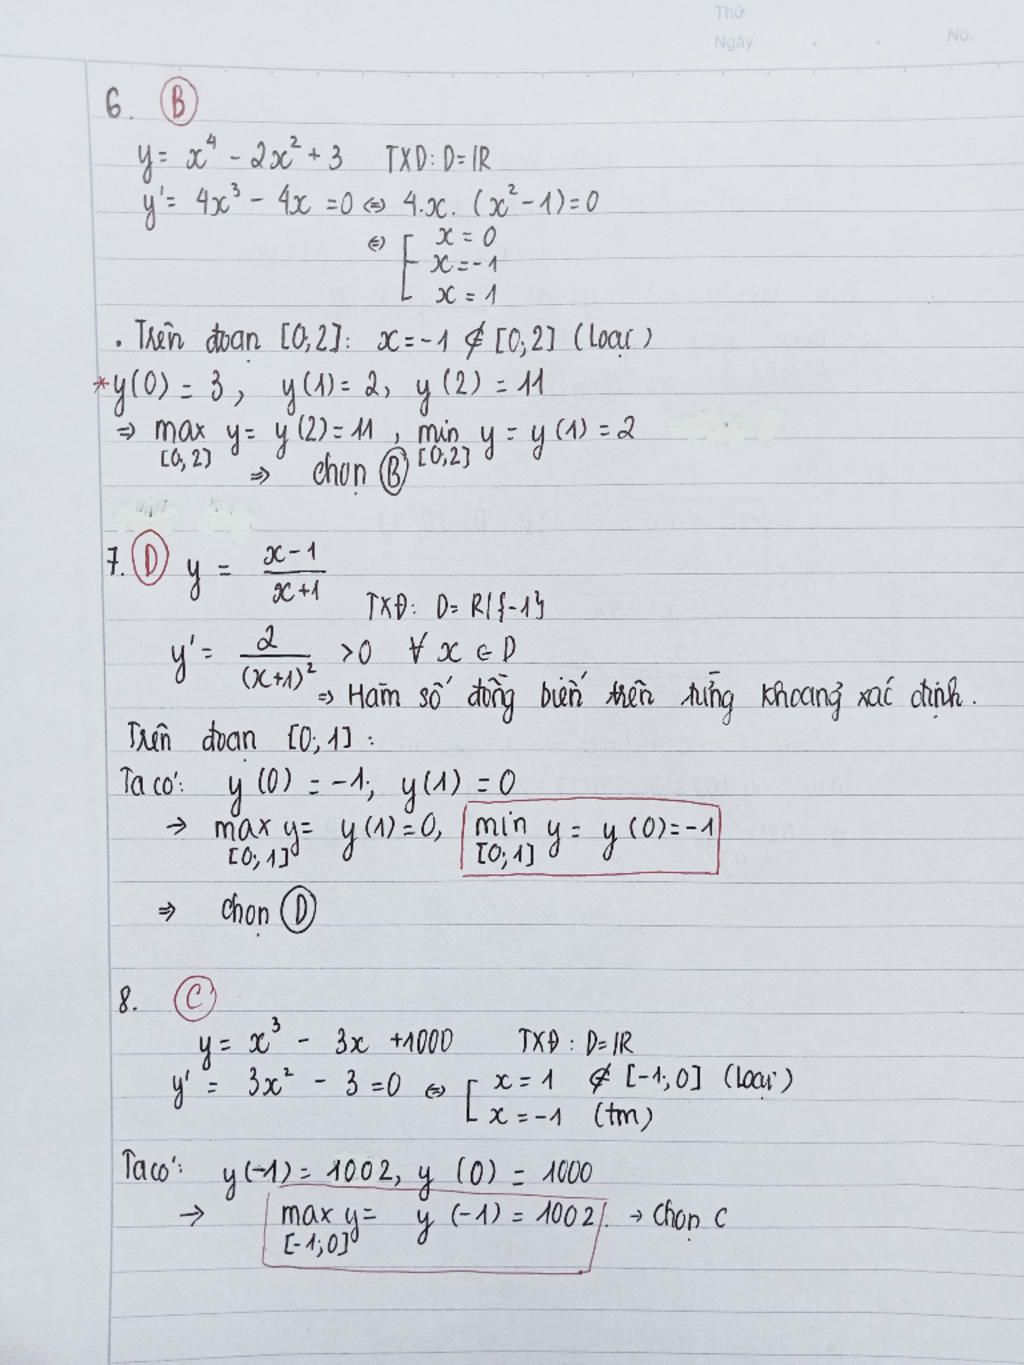 Thứ
Ngày . . No.
6. B
y = x⁴ - 2x² + 3 TXD: D = IR
y' = 4x³ - 4x = 0 ⇔ 4.x. (x² - 1) = 0
⇔ [ x = 0
x = -1
x = 1
. Trên đoạn [0,2]: x = -1 ∉ [0,2] (loại)
*y(0) = 3, y(1) = 2, y(2) = 11
⇒ max y = y(2) = 11, min y = y(1) = 2
[0,2] [0,2]
⇒ chọn B
7. D y = (x-1)/(x+1)
TXĐ: D = R∖{-1}
y' = 2/(x+1)² > 0 ∀ x ∈ D
⇒ Hàm số đồng biến trên từng khoảng xác định.
Trên đoạn [0;1] :
Ta có: y(0) = -1; y(1) = 0
→ max y = y(1) = 0, min y = y(0) = -1
[0;1] [0;1]
⇒ chọn D
8. C
y = x³ - 3x + 1000 TXĐ : D = IR
y' = 3x² - 3 = 0 ⇔ [ x = 1 ∉ [-1;0] (loại)
x = -1 (tm)
Ta có: y(-1) = 1002, y(0) = 1000
→ max y = y(-1) = 1002. → chọn C
[-1;0]